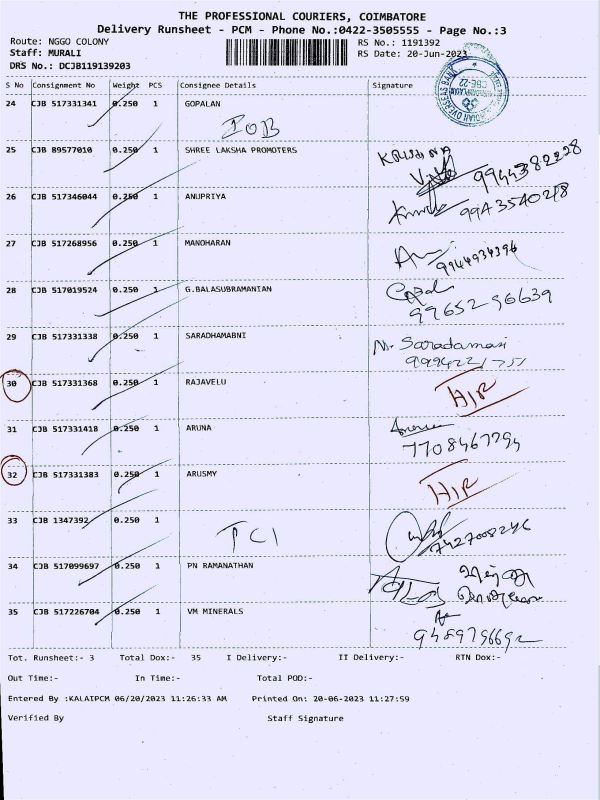 THE PROFESSIONAL COURIERS, COIMBATORE
Delivery Runsheet - PCM - Phone No.:0422-3505555 - Page No.:3
Route: NGGO COLONY RS No.: 1191392
Staff: MURALI RS Date: 20-Jun-2023
DRS No.: DCJB119139203
S No Consignment No Weight PCS Consignee Details Signature
24 CJB 517331341 0.250 1 GOPALAN
IOB
25 CJB 89577010 0.250 1 SHREE LAKSHA PROMOTERS KRISHNA
9944382228
26 CJB 517346044 0.250 1 ANUPRIYA
9943540218
27 CJB 517268956 0.250 1 MANOHARAN
9944934396
28 CJB 517019524 0.250 1 G.BALASUBRAMANIAN
9965296639
29 CJB 517331338 0.250 1 SARADHAMABNI M. Saradamani
9994221751
30 CJB 517331368 0.250 1 RAJAVELU H/R
31 CJB 517331418 0.250 1 ARUNA
7708467294
32 CJB 517331383 0.250 1 ARUSMY H/R
33 CJB 1347392 0.250 1
TCI 7427008246
34 CJB 517099697 0.250 1 PN RAMANATHAN
35 CJB 517226704 0.250 1 VM MINERALS
9489796692
Tot. Runsheet:- 3 Total Dox:- 35 I Delivery:- II Delivery:- RTN Dox:-
Out Time:- In Time:- Total POD:-
Entered By :KALAIPCM 06/20/2023 11:26:33 AM Printed On: 20-06-2023 11:27:59
Verified By Staff Signature